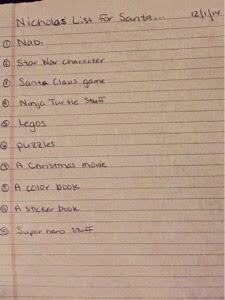 Nicholas' List For Santa...
12/1/14
① Nabi
② Star War character
③ Santa Claus game
④ Ninja Turtle Stuff
⑤ Legos
⑥ puzzles
⑦ A Christmas movie
⑧ A color book
⑨ A sticker book
⑩ Super hero stuff